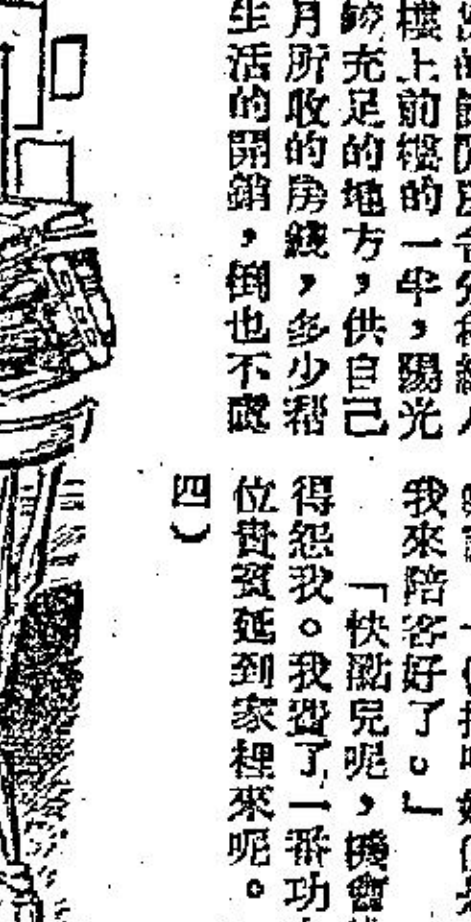 樓上前樓的一半，陽光
較充足的地方，供自己
月所收的房錢，多少幫
生活的開銷，倒也不感
我來陪客好了。」
「快點兒呢，機會
得怨我。我費了一番功
位貴賓延到家裡來呢。
四）